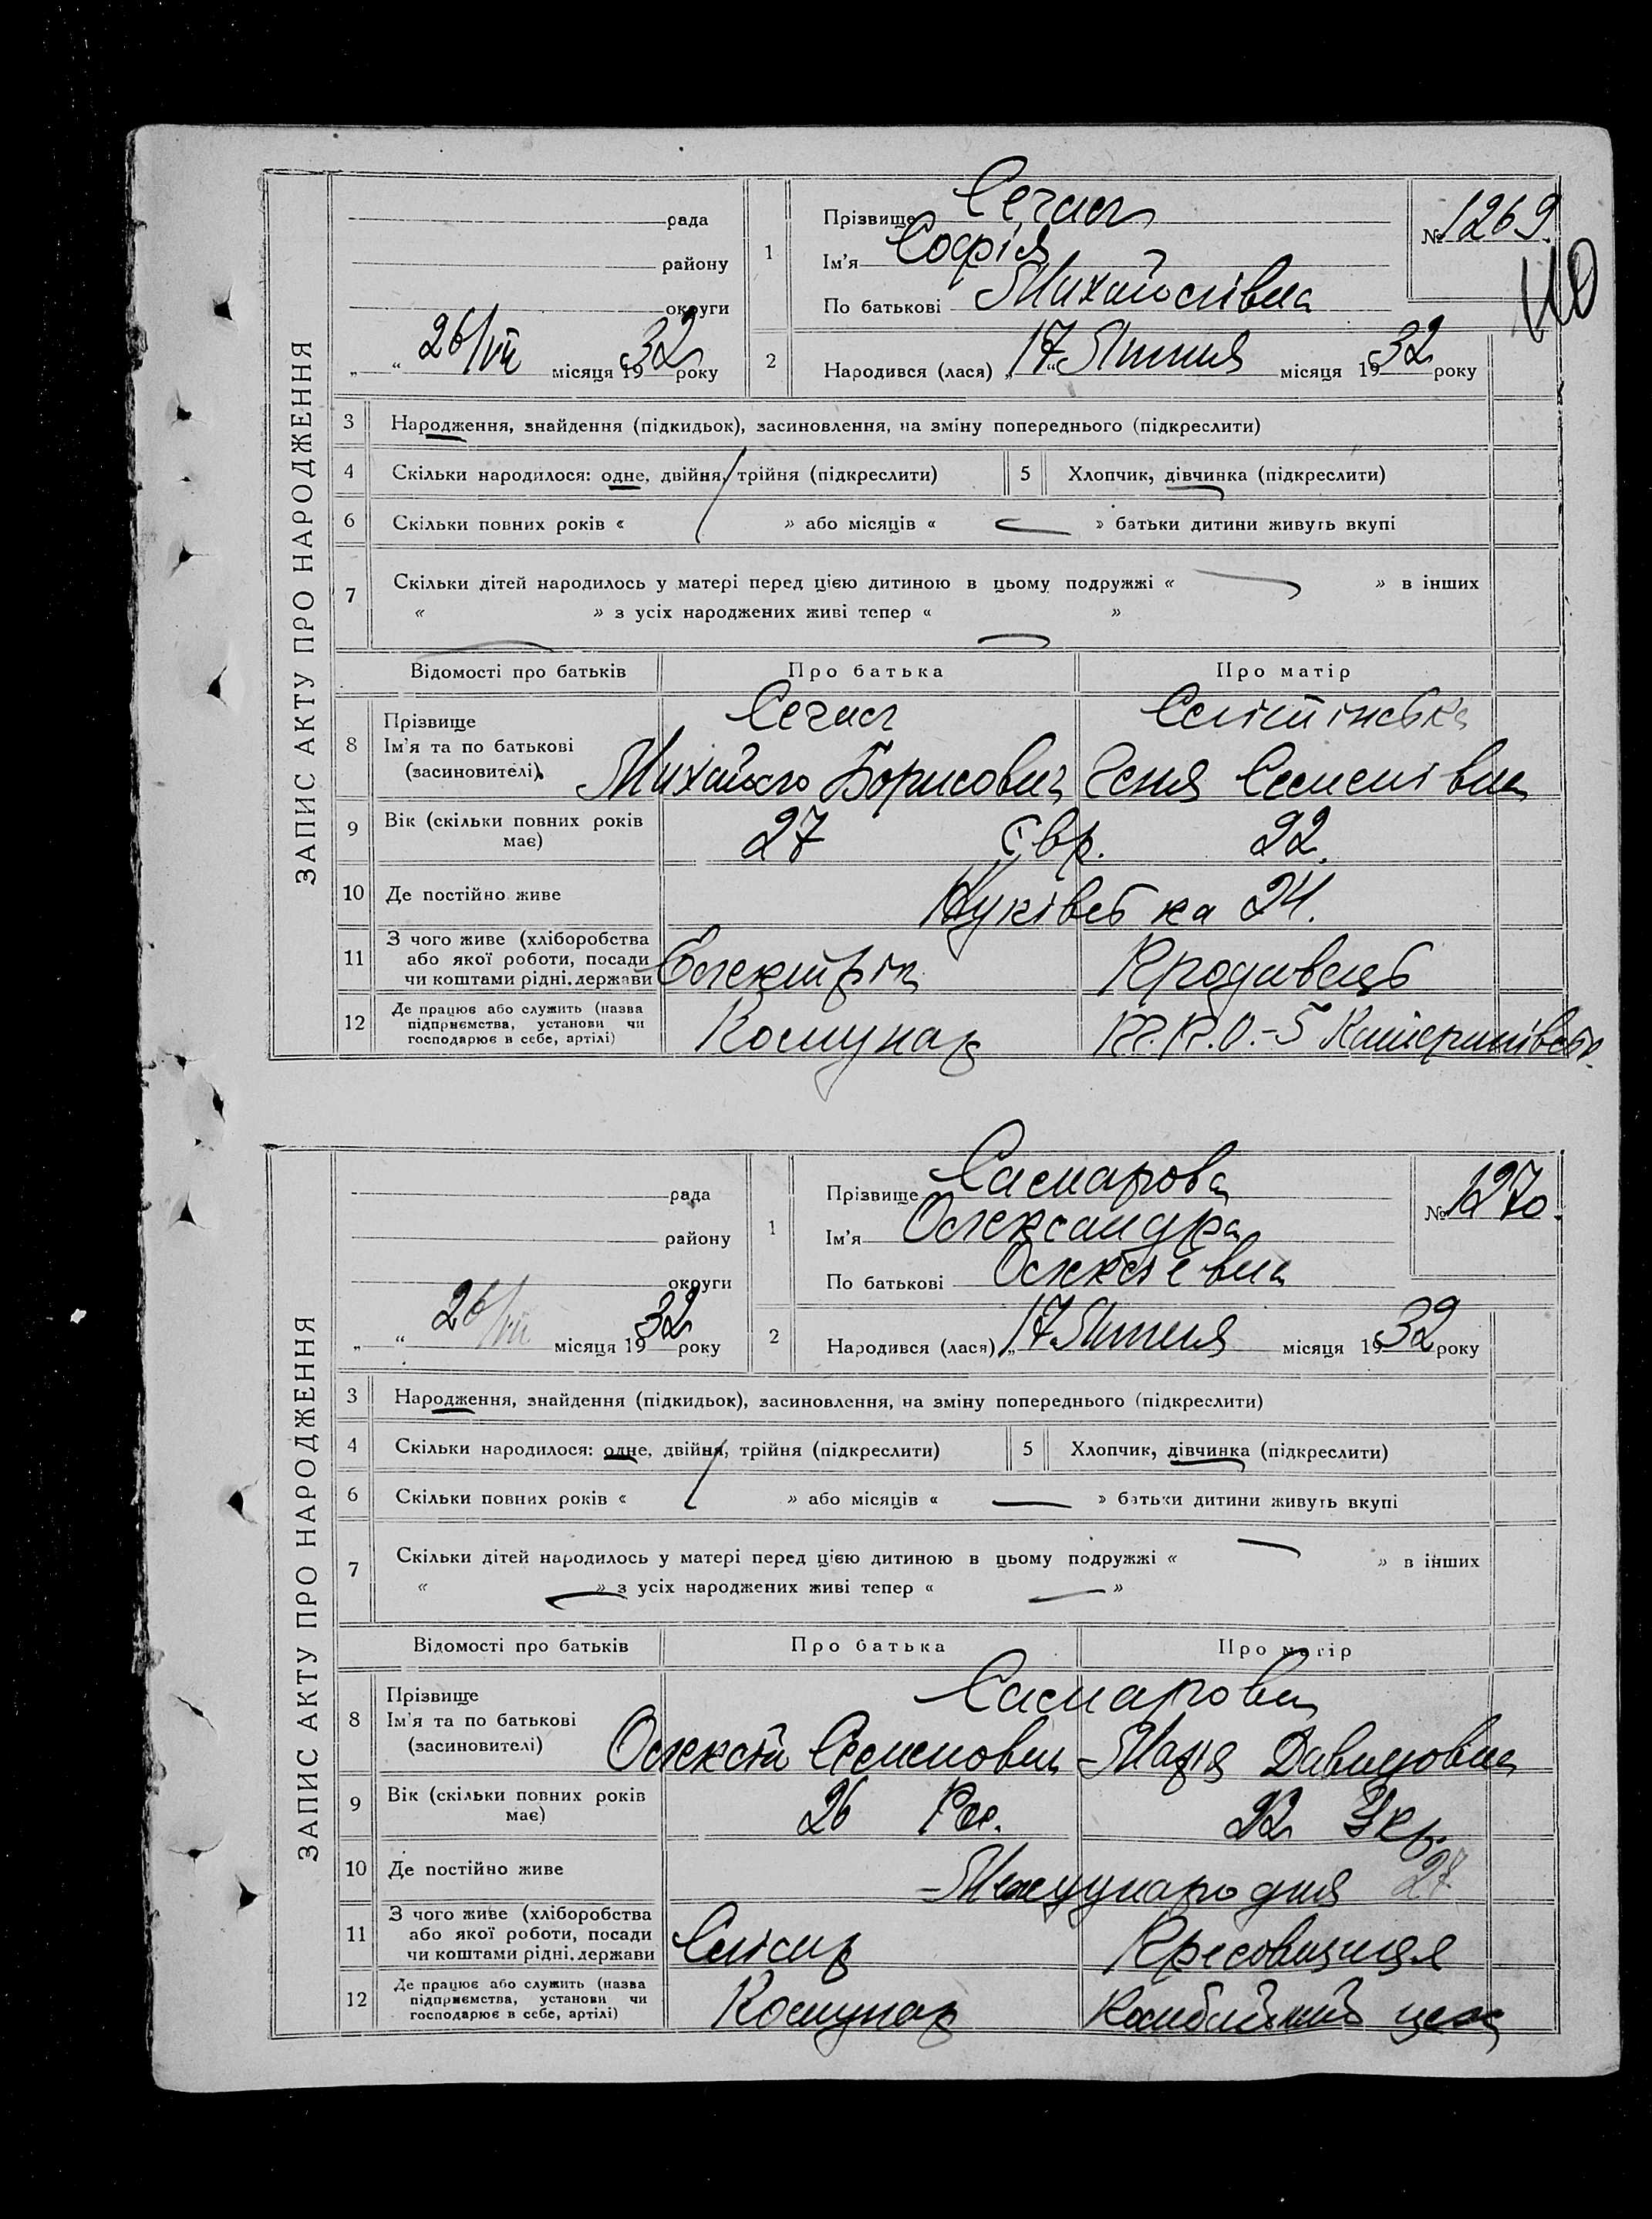 ЗАПИС АКТУ ПРО НАРОДЖЕННЯ
рада
району
округи
„ “ 26/VII місяця 1932 року
1
Прізвище
Ім'я Софія
По батькові Михайлівна
№ 1269.
110
2
Народився (лася) „17“ Липня місяця 1932 року
3 Народження, знайдення (підкидьок), засиновлення, на зміну попереднього (підкреслити)
4 Скільки народилося: одне, двійня, трійня (підкреслити) 5 Хлопчик, дівчинка (підкреслити)
6 Скільки повних років « » або місяців « — » батьки дитини живуть вкупі
7 Скільки дітей народилось у матері перед цією дитиною в цьому подружжі « — » в інших
« » з усіх народжених живі тепер « »
Відомості про батьків Про батька Про матір
8 Прізвище
Ім'я та по батькові
(засновителі)
Михайло Борисович Семенівна
9 Вік (скільки повних років має) 27 Євр. 22.
10 Де постійно живе 24.
11 З чого живе (хліборобства або якої роботи, посади чи коштами рідні, держави Електрик Продавець
12 Де працює або служить (назва підприємства, установи чи господарює в себе, артілі) Комунар
ЗАПИС АКТУ ПРО НАРОДЖЕННЯ
рада
району
округи
„ “ 26/VII місяця 1932 року
1
Прізвище Самарова
Ім'я Олександра
По батькові Олексіївна
№ 1270.
2
Народився (лася) „17 Липня місяця 1932 року
3 Народження, знайдення (підкидьок), засиновлення, на зміну попереднього (підкреслити)
4 Скільки народилося: одне, двійня, трійня (підкреслити) 5 Хлопчик, дівчинка (підкреслити)
6 Скільки повних років « » або місяців « — » батьки дитини живуть вкупі
7 Скільки дітей народилось у матері перед цією дитиною в цьому подружжі « — » в інших
« — » з усіх народжених живі тепер « — »
Відомості про батьків Про батька Про матір
8 Прізвище
Ім'я та по батькові
(засиновителі)
Самарова
Олексій Семенович Марія Давидовна
9 Вік (скільки повних років має) 26 Рос. 22 Укр.
10 Де постійно живе Международня 27
11 З чого живе (хліборобства або якої роботи, посади чи коштами рідні, держави Слюсар
12 Де працює або служить (назва підприємства, установи чи господарює в себе, артілі) Комунар Комбайний цех